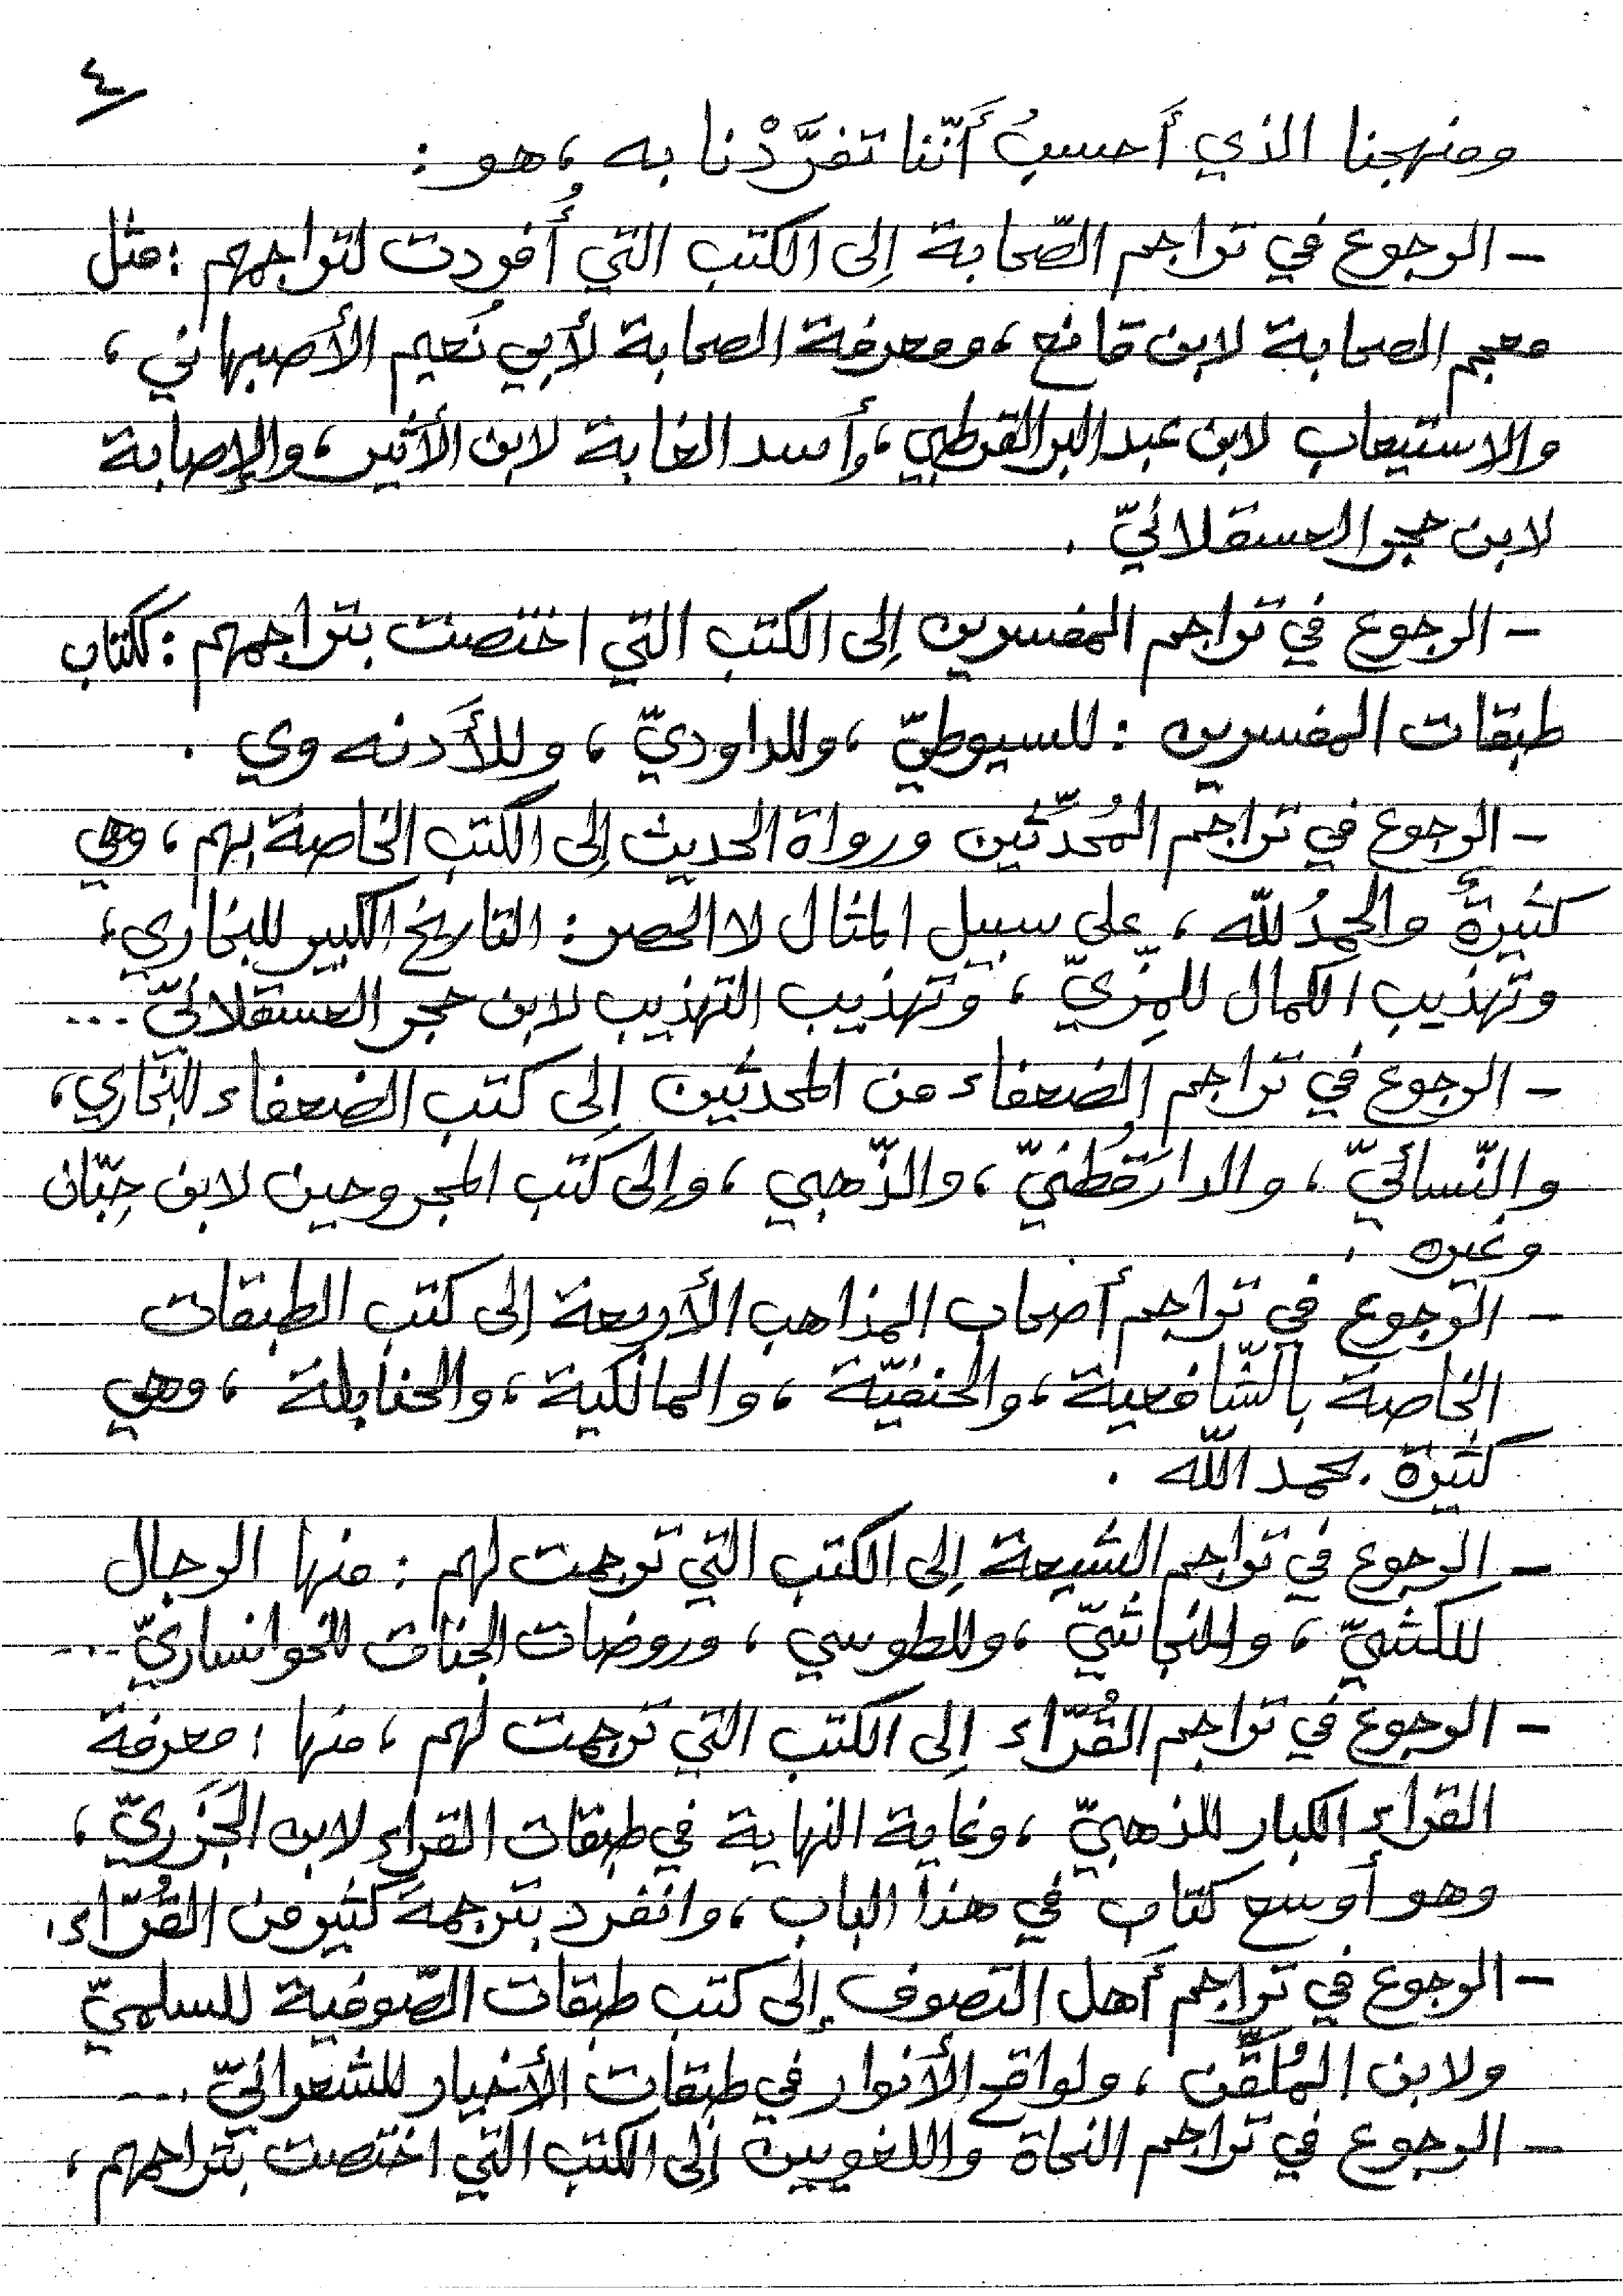 ٤
ومنهجنا الذي أَحسبُ أَنّنا تفرَّدْنا به ، هو :
- الرجوع في تراجم الصّحابة إلى الكتب التي أُفردت لتراجمهم : مثل
معجم الصحابة لابن قانع ، ومعرفة الصحابة لأبي نُعيم الأصبهاني ،
والاستيعاب لابن عبد البر القرطبي ، وأُسد الغابة لابن الأثير ، والإصابة
لابن حجر العسقلانيّ .
- الرجوع في تراجم المفسرين إلى الكتب التي اختصت بتراجمهم : ككتاب
طبقات المفسرين : للسيوطيّ ، وللداوديّ ، وللأَدنه وي .
- الرجوع في تراجم المُحدِّثين ورواة الحديث إلى الكتب الخاصة بهم ، وهي
كثيرةٌ والحمدُ للّه ، على سبيل المثال لا الحصر : التاريخ الكبير للبخاري ،
وتهذيب الكمال للمِزيّ ، وتهذيب التهذيب لابن حجر العسقلانيّ ...
- الرجوع في تراجم الضعفاء من المحدثين إلى كتب الضعفاء للبخاري ،
والنّسائيّ ، والدارَقُطنيّ ، والذّهبي ، وإلى كتب المجروحين لابن حِبّان
وغيره .
- الرجوع في تراجم أصحاب المذاهب الأربعة إلى كتب الطبقات
الخاصة بالشّافعية ، والحنفيّة ، والمالكية ، والحنابلة ، وهي
كثيرة بحمد اللّه .
- الرجوع في تراجم الشيعة إلى الكتب التي ترجمت لهم : منها الرجال
للكشيّ ، وللنجاشيّ ، وللطوسي ، وروضات الجنات للخوانساريّ ...
- الرجوع في تراجم القُرّاء إلى الكتب التي ترجمت لهم ، منها : معرفة
القراء الكبار للذهبيّ ، وغاية النهاية في طبقات القراء لابن الجَزَريّ ،
وهو أوسع كتاب في هذا الباب ، وانفرد بترجمة كثير من القُرّاء .
- الرجوع في تراجم أَهل التصوف إلى كتب طبقات الصّوفية للسلميّ
ولابن المُلقّن ، ولواقح الأنوار في طبقات الأخيار للشعرانيّ ...
- الرجوع في تراجم النحاة واللغويين إلى الكتب التي اختصت بتراجمهم ،